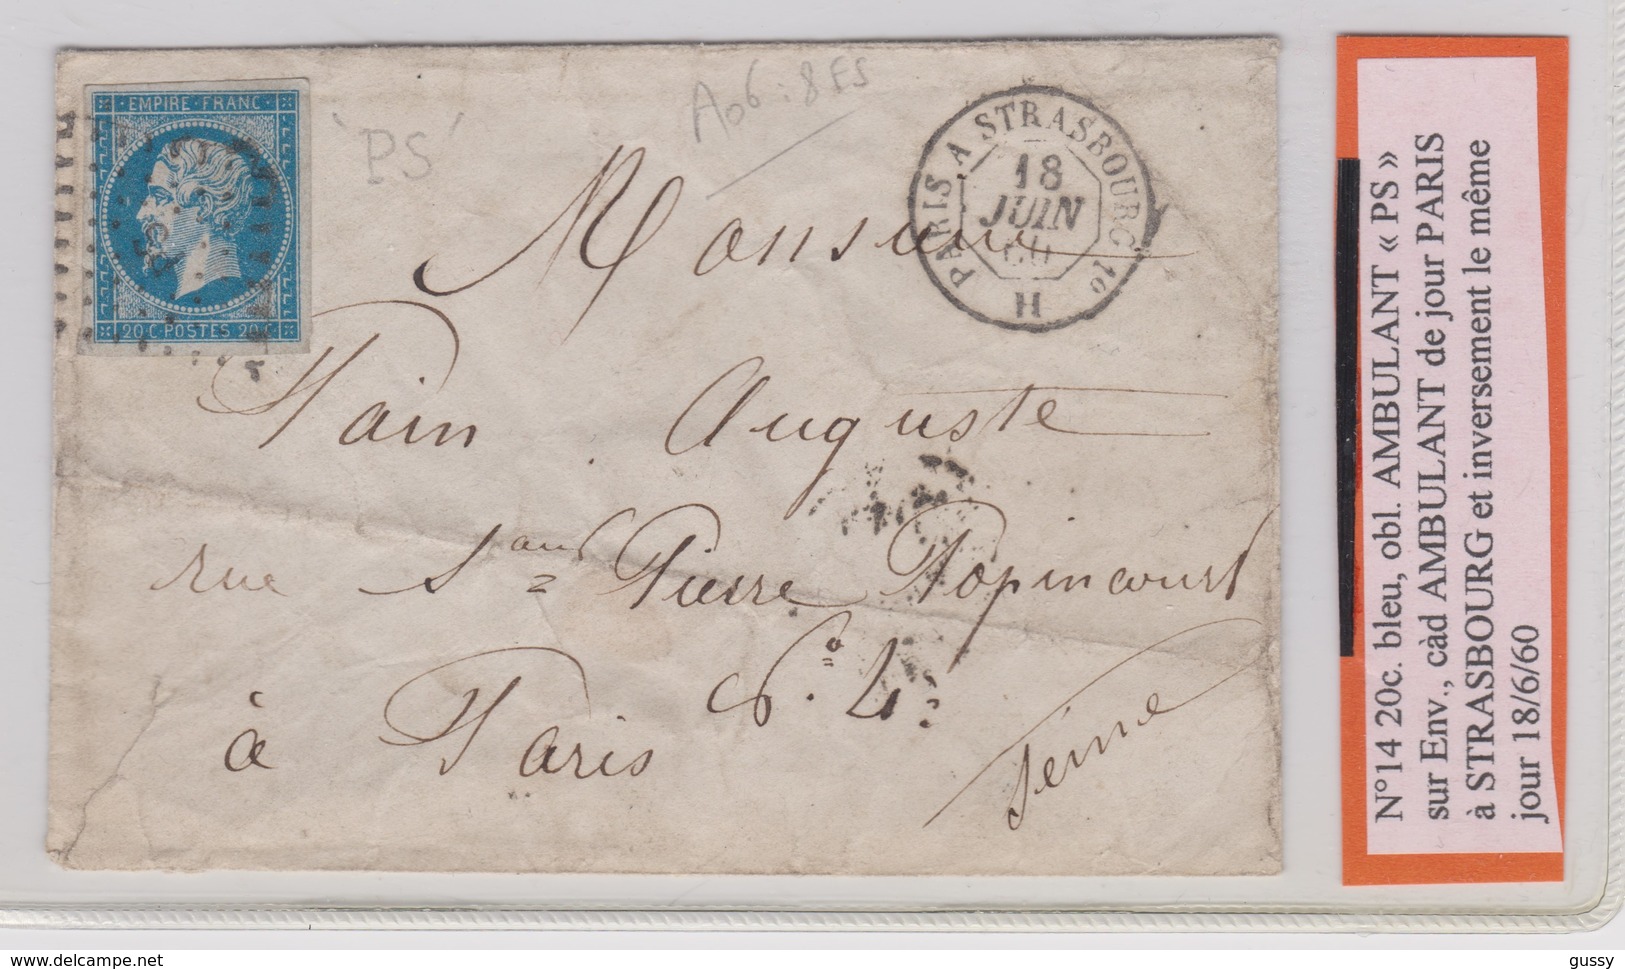 EMPIRE · FRANC
20 C · POSTES · 20 C
PS
'PS'
A06 : 8 FS
PARIS A STRASBOURG 1°
18
JUIN
60
H
Monsieur
Pain Auguste
rue Pierre Popincourt
4
à Paris
Seine
N°14 20c. bleu, obl. AMBULANT « PS »
sur Env., càd AMBULANT de jour PARIS
à STRASBOURG et inversement le même
jour 18/6/60
www.delcampe.net
gussy